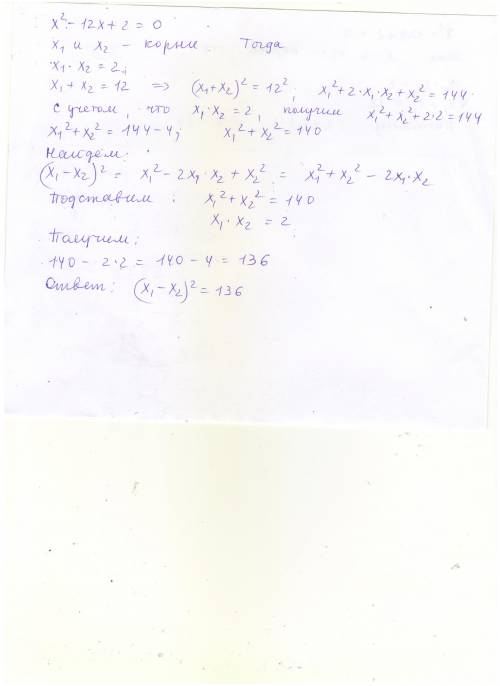 x² - 12x + 2 = 0
x₁ и x₂ - корни. Тогда
x₁ · x₂ = 2;
x₁ + x₂ = 12 ⇒ (x₁+x₂)² = 12²; x₁² + 2·x₁·x₂ + x₂² = 144.
С учетом, что x₁·x₂ = 2, получим x₁² + x₂² + 2·2 = 144
x₁² + x₂² = 144 - 4; x₁² + x₂² = 140
Найдём:
(x₁ - x₂)² = x₁² - 2x₁·x₂ + x₂² = x₁² + x₂² - 2x₁·x₂
Подставим: x₁² + x₂² = 140
x₁ · x₂ = 2
Получим:
140 - 2·2 = 140 - 4 = 136
Ответ: (x₁ - x₂)² = 136